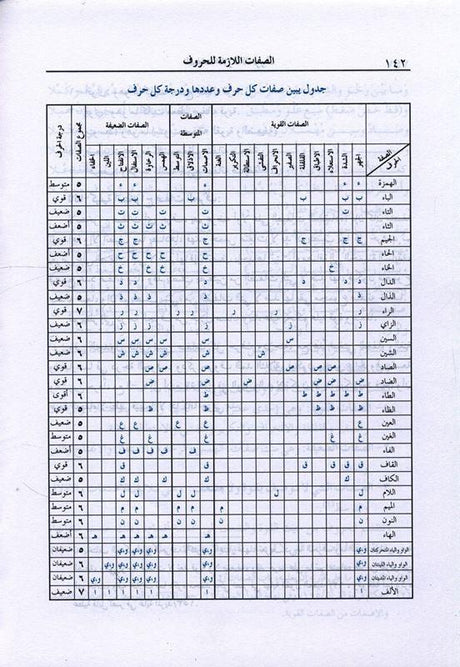 ١٤٢ الصفات اللازمة للحروف
جدول يبين صفات كل حرف وعددها ودرجة كل حرف
الصفة الحرف الصفات القوية الصفات المتوسطة الصفات الضعيفة مجموع الصفات درجة الحرف
الجهر الشدة الاستعلاء الاطباق القلقلة الصفير الانحراف التفشي الاستطالة التكرير الغنة الاصمات الاذلاق التوسط الهمس الرخاوة الاستفال الانفتاح اللين الخفاء
الهمزة ء ء ء ء ء ٥ متوسط
الباء ب ب ب ب ب ب ٦ قوي
التاء ت ت ت ت ت ٥ ضعيف
الثاء ث ث ث ث ث ٥ أضعف
الجيم ج ج ج ج ج ج ٦ قوي
الحاء ح ح ح ح ح ٥ أضعف
الخاء خ خ خ خ خ ٥ ضعيف
الدال د د د د د د ٦ قوي
الذال ذ ذ ذ ذ ذ ٥ ضعيف
الراء ر ر ر ر ر ر ر ٧ قوي
الزاي ز ز ز ز ز ز ٦ ضعيف
السين س س س س س س ٦ ضعيف
الشين ش ش ش ش ش ش ٦ ضعيف
الصاد ص ص ص ص ص ص ٦ قوي
الضاد ض ض ض ض ض ض ٦ قوي
الطاء ط ط ط ط ط ط ٦ أقوى
الظاء ظ ظ ظ ظ ظ ٥ قوي
العين ع ع ع ع ع ٥ ضعيف
الغين غ غ غ غ غ ٥ متوسط
الفاء ف ف ف ف ف ٥ أضعف
القاف ق ق ق ق ق ق ٦ قوي
الكاف ك ك ك ك ك ٥ ضعيف
اللام ل ل ل ل ل ل ٦ متوسط
الميم م م م م م م ٦ متوسط
النون ن ن ن ن ن ن ٦ متوسط
الهاء هـ هـ هـ هـ هـ هـ ٦ أضعف
الواو والياء المتحركتان و،ي و،ي و،ي و،ي و،ي ٥ ضعيفان
الواو والياء اللينتان و،ي و،ي و،ي و،ي و،ي و،ي ٦ ضعيفتان
الواو والياء المديتان و،ي و،ي و،ي و،ي و،ي و،ي ٦ ضعيفتان
الألف ا ا ا ا ا ا ا ٧ ضعيف